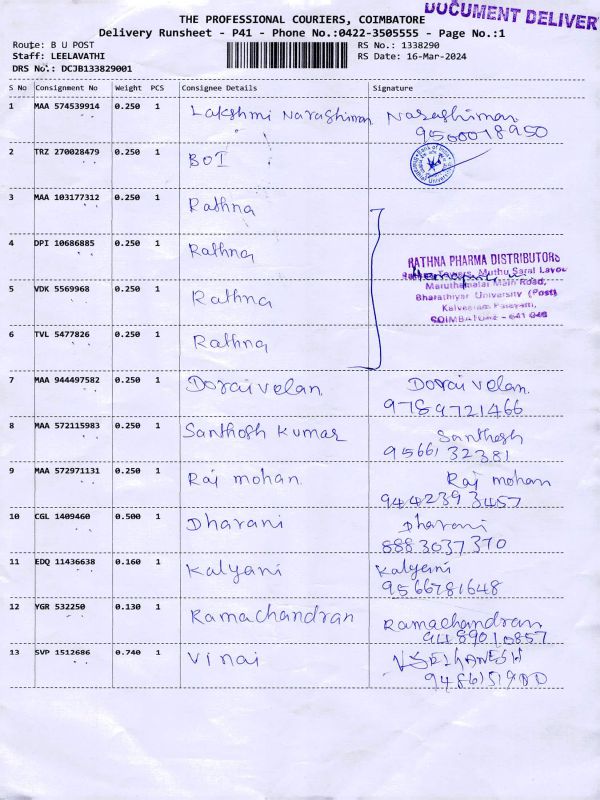 DOCUMENT DELIVER
THE PROFESSIONAL COURIERS, COIMBATORE
Delivery Runsheet - P41 - Phone No.:0422-3505555 - Page No.:1
Route: B U POST
RS No.: 1338290
Staff: LEELAVATHI
RS Date: 16-Mar-2024
DRS No.: DCJB133829001
S No Consignment No Weight PCS Consignee Details Signature
1 MAA 574539914 0.250 1 Lakshmi Narashiman Narashiman
9500018950
2 TRZ 270028479 0.250 1 BOI
3 MAA 103177312 0.250 1 Rathna
4 DPI 10686885 0.250 1 Rathna
RATHNA PHARMA DISTRIBUTORS
Towers, Muthu Saral Layou
Maruthamalai Main Road,
Bharathiyar University (Post)
COIMBATORE - 641 046
5 VDK 5569968 0.250 1 Rathna
6 TVL 5477826 0.250 1 Rathna
7 MAA 944497582 0.250 1 Doraivelan Doraivelan
9789721466
8 MAA 572115983 0.250 1 Santhosh Kumar Santhosh
9566132381
9 MAA 572971131 0.250 1 Raj mohan Raj mohan
9442393457
10 CGL 1409460 0.500 1 Dharani Dharani
8883037370
11 EDQ 11436638 0.160 1 Kalyani Kalyani
9566781648
12 YGR 532250 0.130 1 Ramachandran Ramachandran
9489010857
13 SVP 1512686 0.740 1 Vinai